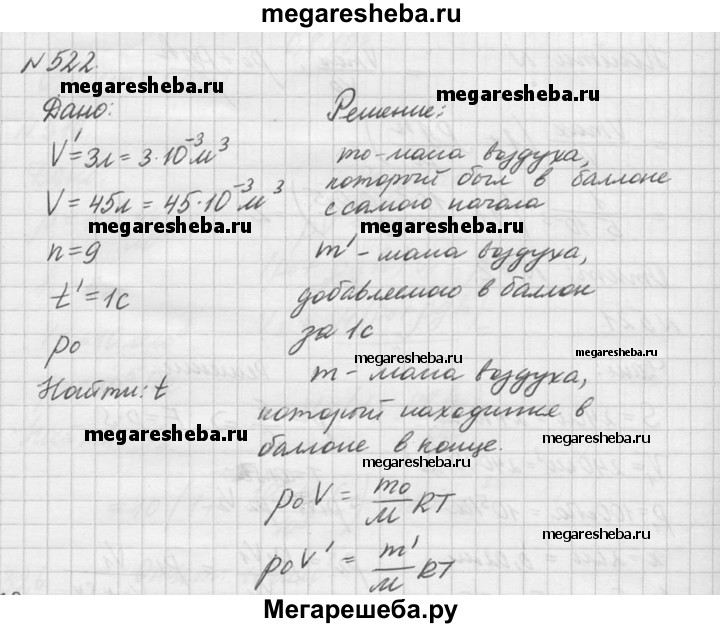 megaresheba.ru
№522.
megaresheba.ru
megaresheba.ru
Дано:
V' = 3л = 3·10⁻³ м³
V = 45л = 45·10⁻³ м³
megaresheba.ru
n = 9
t' = 1с
megaresheba.ru
p₀
Найти: t
megaresheba.ru
Решение:
m₀ - масса воздуха,
который был в баллоне
с самого начала
megaresheba.ru
m' - масса воздуха,
добавляемого в баллон
за 1с
megaresheba.ru
m - масса воздуха,
который находится в
баллоне в конце.
megaresheba.ru
megaresheba.ru
p₀V = m₀/M RT
megaresheba.ru
p₀V' = m'/M RT
Мегарешеба.ру